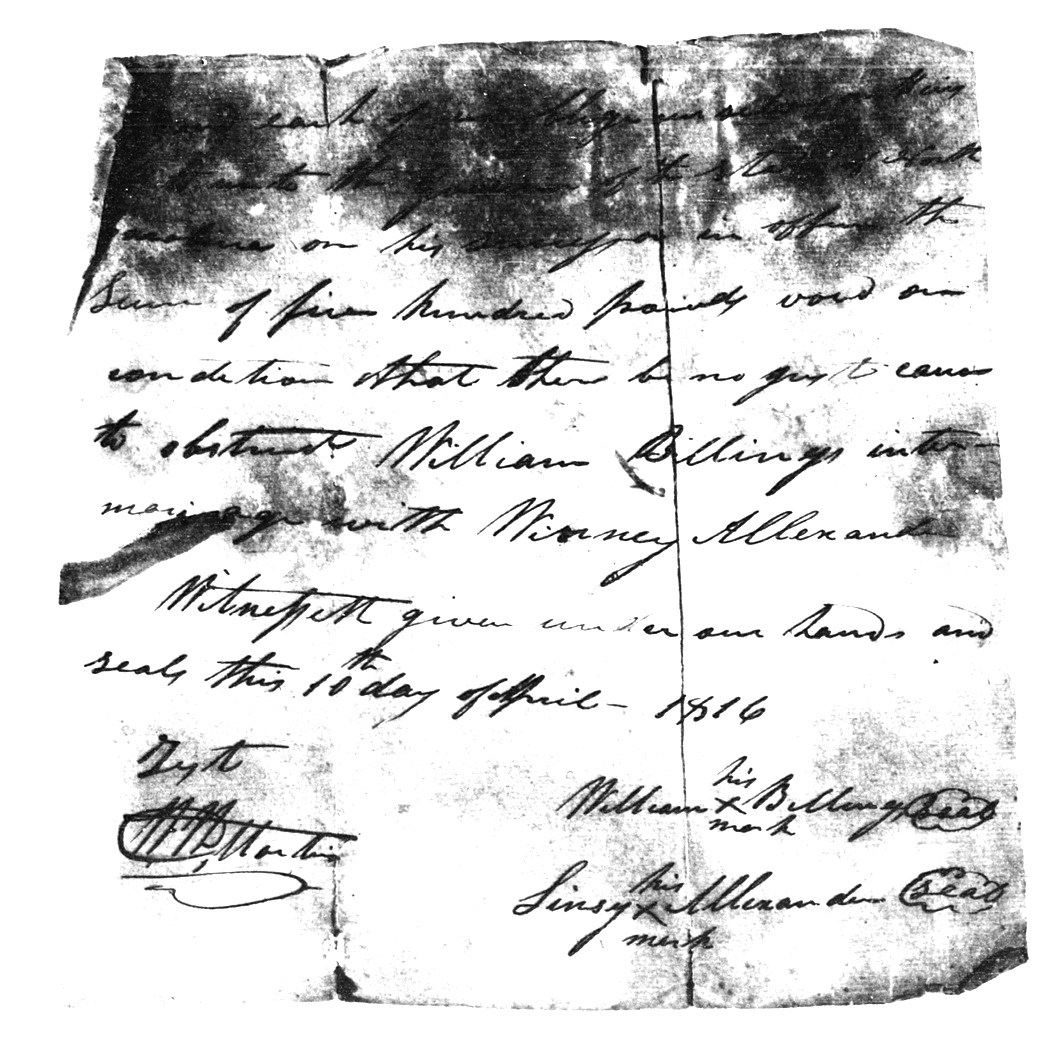 each of us oblige our selves
unto the governor of the State of North
Carolina on his successor in office the
Sum of five hundred pounds void on
condition that there be no gust cause
to obstruct William Billings inter
marriage with Winney Allexand
Witnesseth given under our hands and
seals this 10th day of April - 1816
Test
Martin
his
William x Billings seal
mark
his
Linsy x Allexander seal
mark